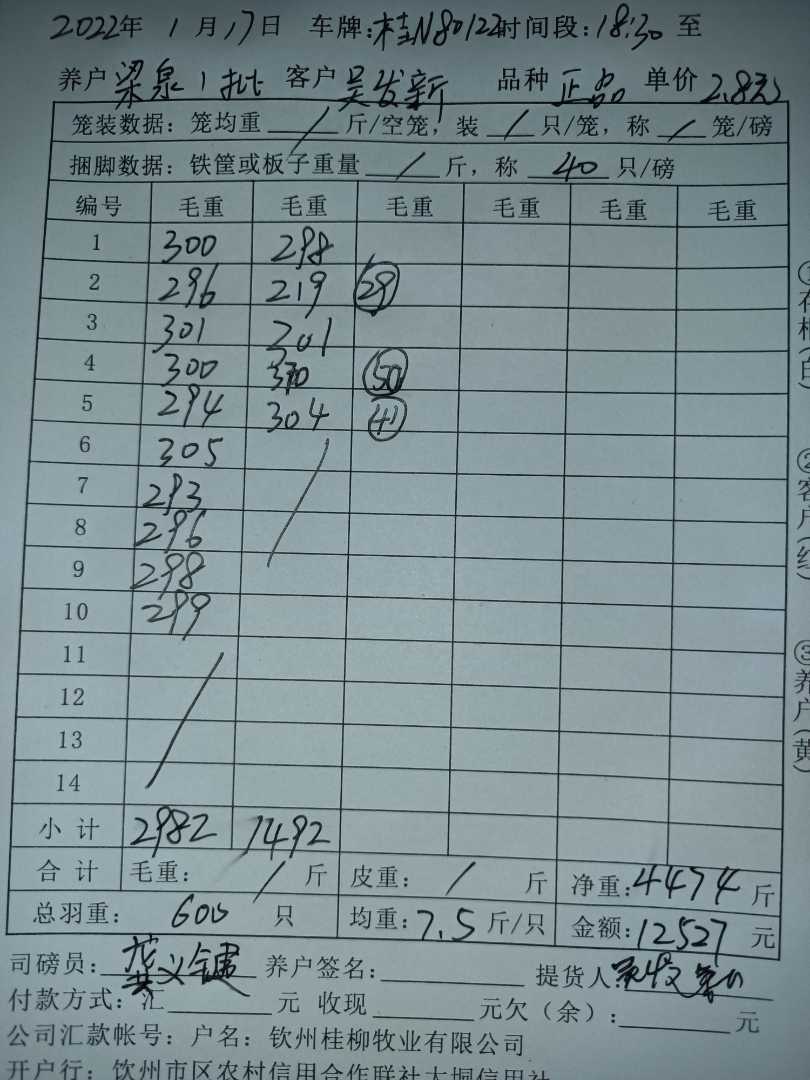 2022年 1月17日 车牌:桂N80122时间段:18:30至
养户 梁泉1批 客户 吴发新 品种 正品 单价 2.8元
笼装数据:笼均重 / 斤/空笼,装 / 只/笼,称 / 笼/磅
捆脚数据:铁筐或板子重量 / 斤,称 40 只/磅
编号 毛重 毛重 毛重 毛重 毛重 毛重
1 300 298
2 296 219 29
3 301 201
4 300 370 50
5 294 304 41
6 305
7 293
8 296
9 298
10 299
11
12
13
14
小计 2982 1492
合计 毛重: / 斤 皮重: / 斤 净重:4474斤
总羽重: 600 只 均重:7.5斤/只 金额:12527元
司磅员:龚义键 养户签名: 提货人:
付款方式:汇 元 收现 元欠(余): 元
公司汇款帐号:户名:钦州桂柳牧业有限公司
开户行:饮州市区农村信用合作联社大垌信用社
①存根(白) ②客户(红) ③养户(黄)